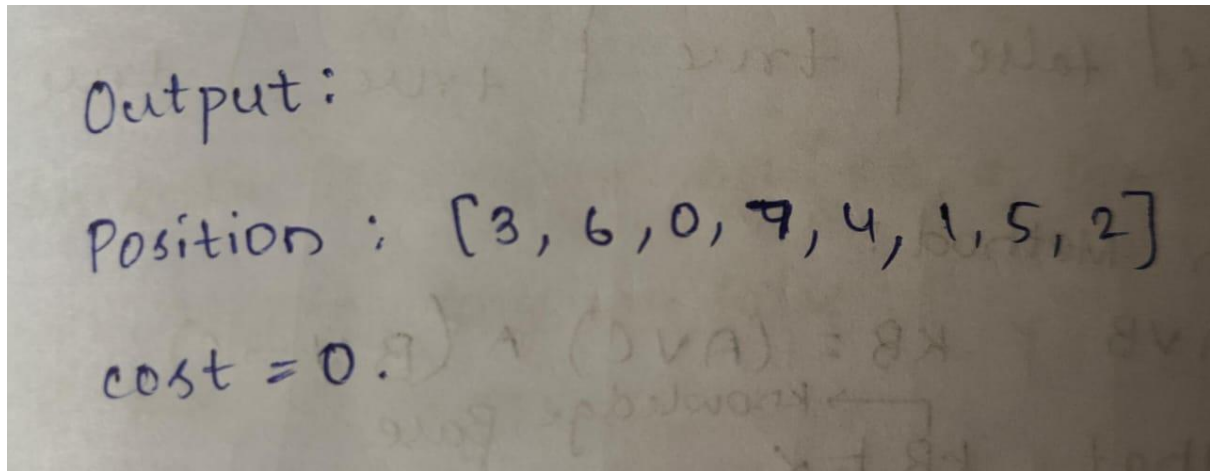 Output:
Position : [3, 6, 0, 7, 4, 1, 5, 2]
cost = 0.